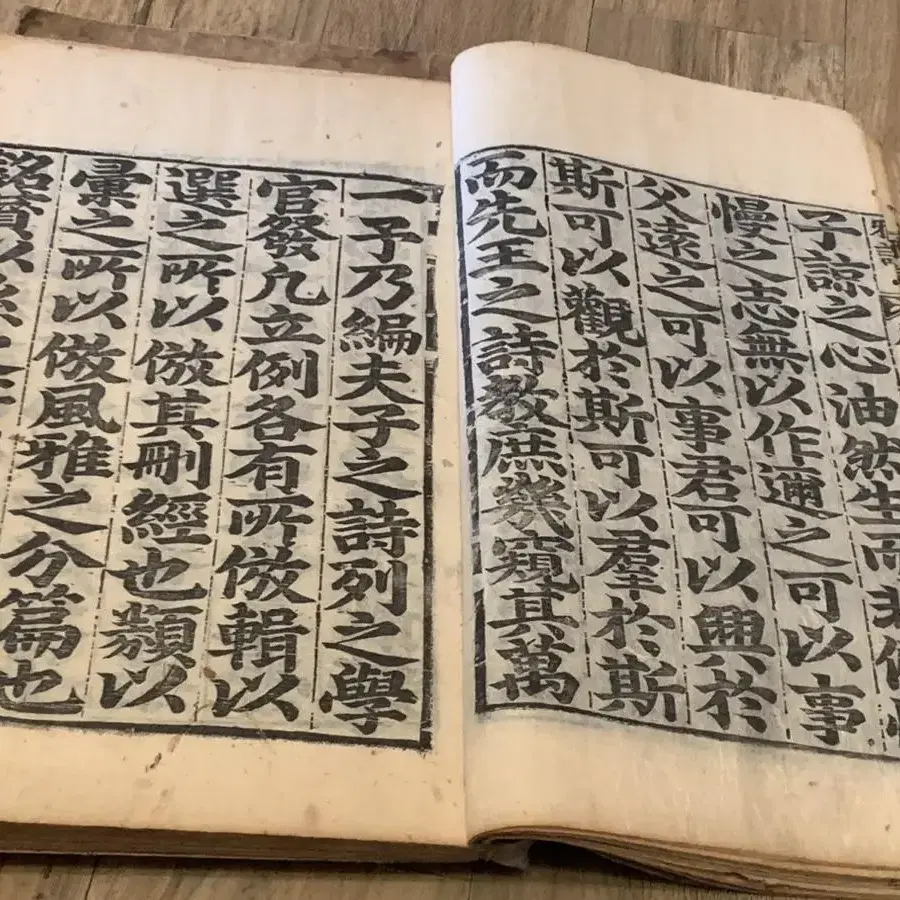 子諒之心油然生而非僻
慢之志無以作邇之可以事
父遠之可以事君可以興於
斯可以觀於斯可以羣於斯
而先王之詩教庶幾窺其萬
一子乃編夫子之詩列之學
官發凡立例各有所倣輯以
選之所以倣其刪經也類以
彙之所以倣風雅之分篇也
銘賛以